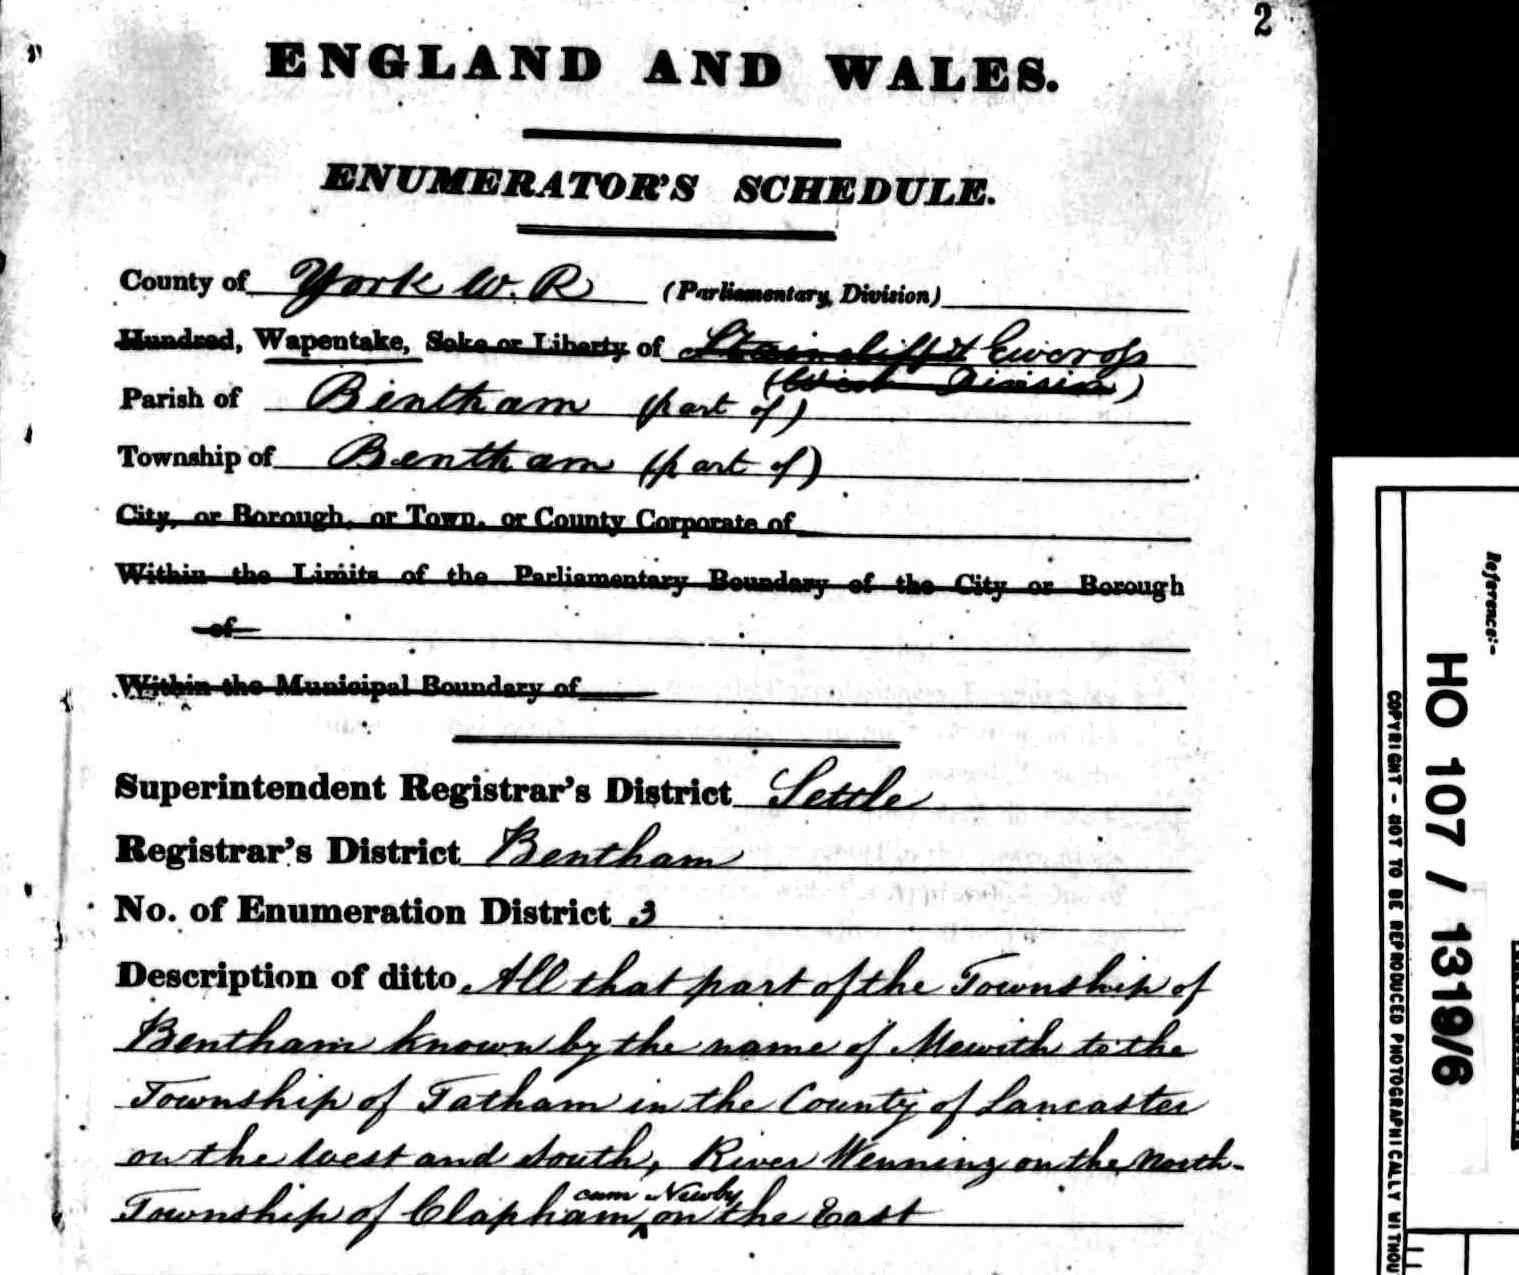 2
ENGLAND AND WALES.
ENUMERATOR'S SCHEDULE.
County of York W. R (Parliamentary Division)
Hundred, Wapentake, Soke or Liberty of Staincliff & Ewcross
(West Division)
Parish of Bentham (part of)
Township of Bentham (part of)
City, or Borough, or Town, or County Corporate of
Within the Limits of the Parliamentary Boundary of the City or Borough
of
Within the Municipal Boundary of
Superintendent Registrar's District Settle
Registrar's District Bentham
No. of Enumeration District 3
Description of ditto All that part of the Township of
Bentham known by the name of Mewith to the
Township of Tatham in the County of Lancaster
on the West and South, River Wenning on the North-
cum Newby
Township of Clapham ^ on the East
Reference:-
HO 107 / 1319/6
COPYRIGHT - NOT TO BE REPRODUCED PHOTOGRAPHICALLY WITHOU